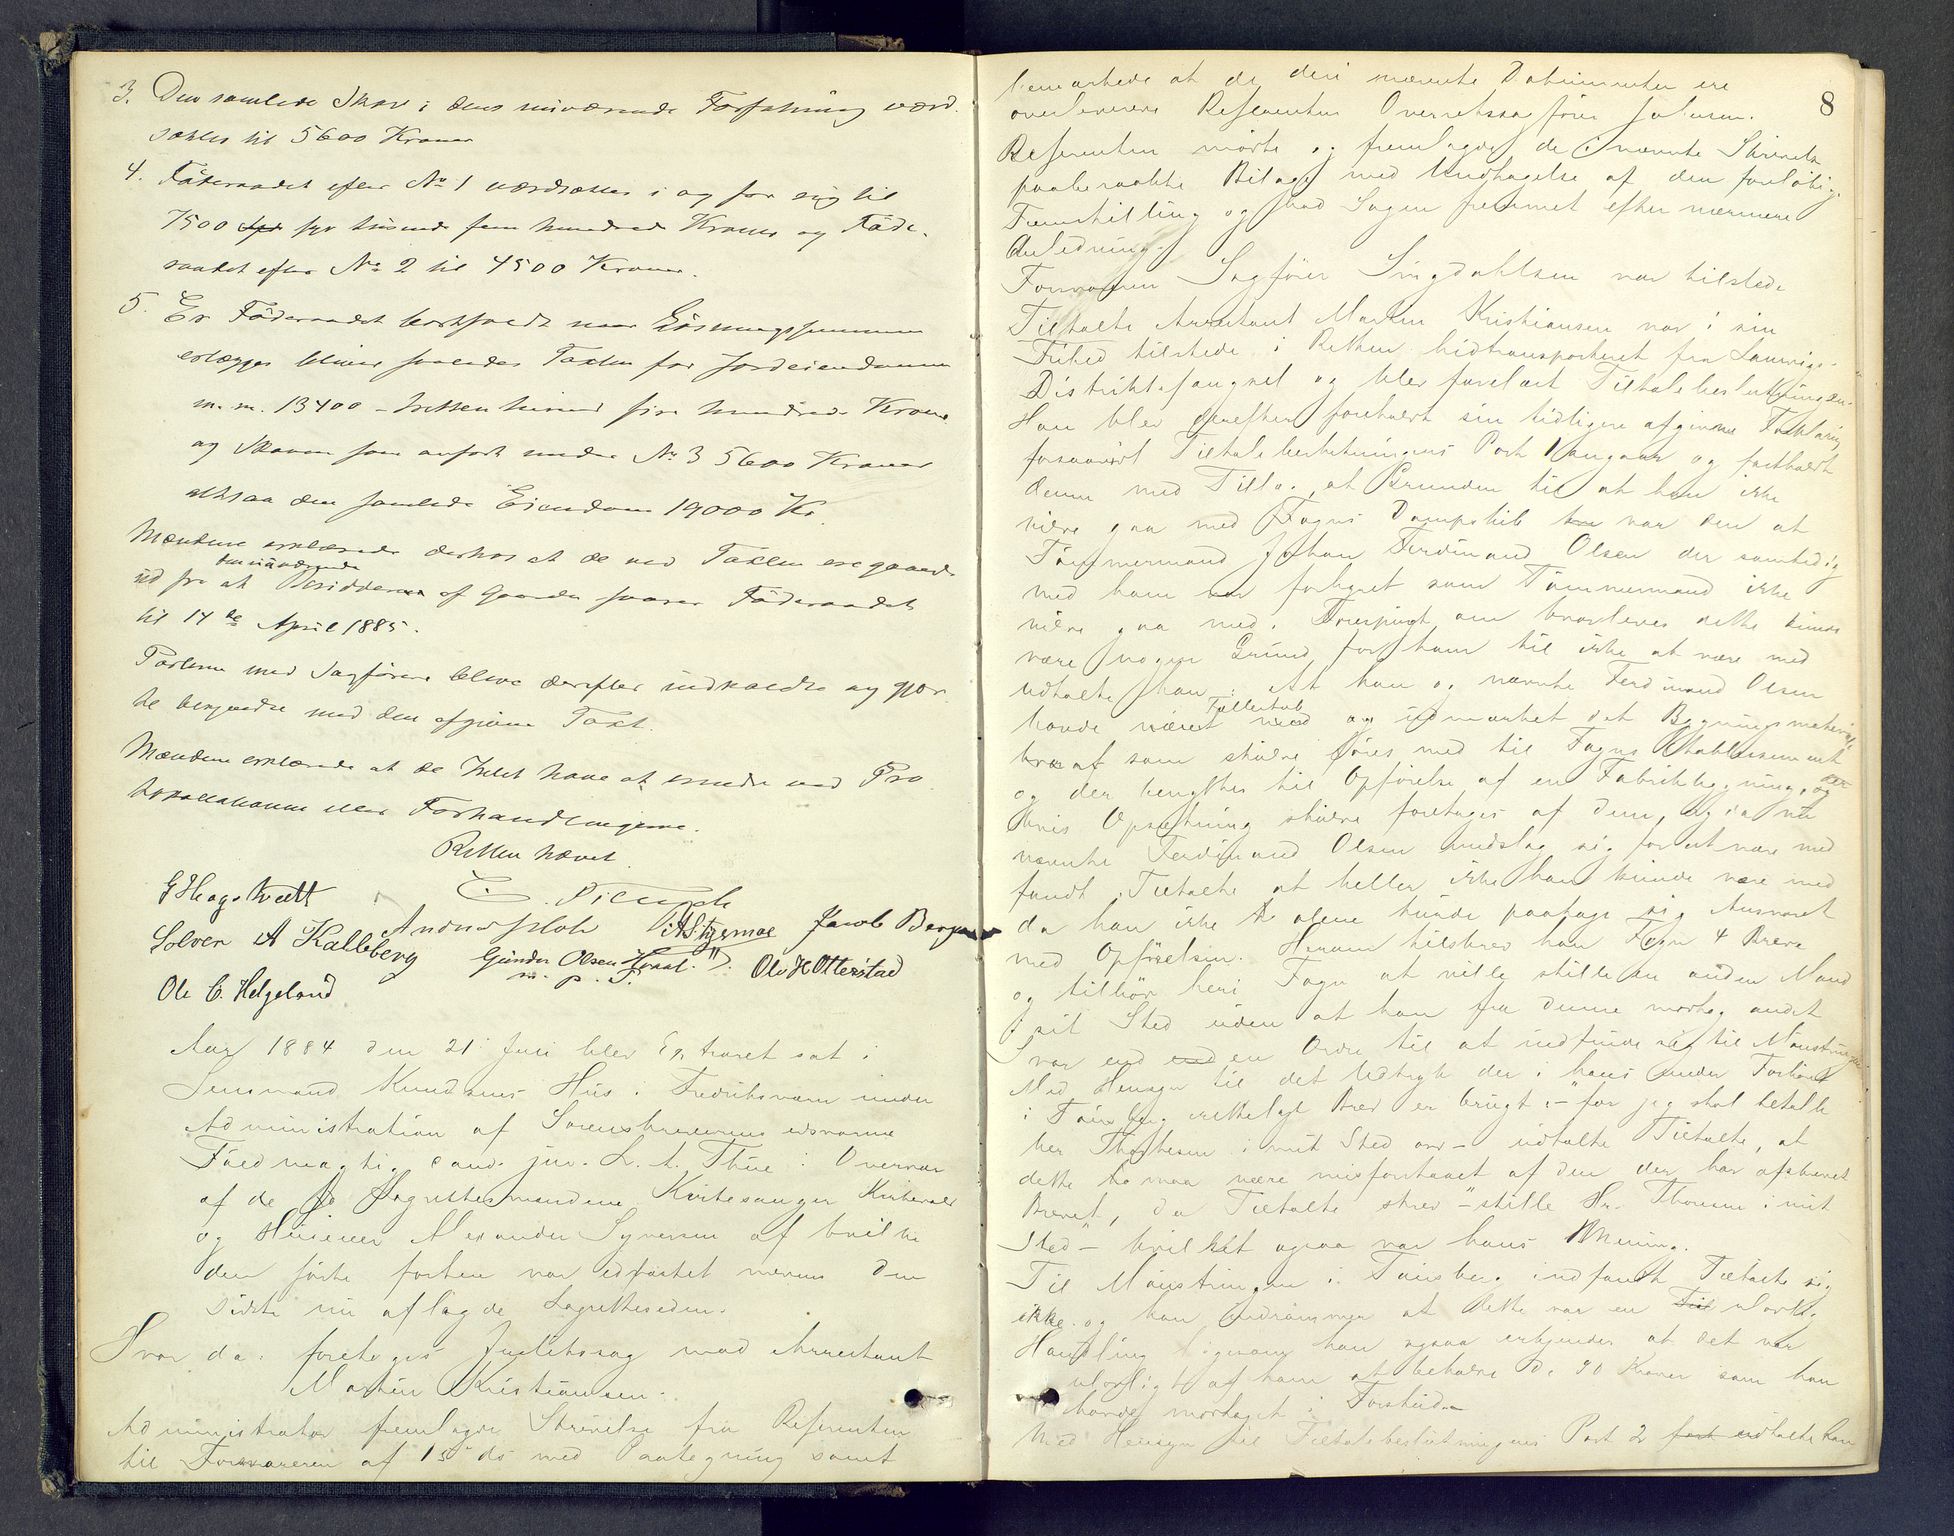 3. Den samlede Skov i dens nuværende Forfatning værd-
sættes til 5600 Kroner
4. Föderaadet efter No 1 værdsættes i og for sig til
7500 syv tusende fem hundrede Kroner og Föde-
raadet efter No 2 til 4500 Kroner.
5. Er Föderaadet bortfaldt naar Løsningssummen
erlægges bliver saaledes Taxten for Jordeiendommen
m. m. 13400 - tretten tusind fire hundrede Kroner
og Skoven som anført under No 3 5600 Kroner
altsaa den samlede Eiendom 19000 Kr.
Mændene erklærede derhos at de ved Taxten ere gaaede
ud fra at den nuværende Besidder af Gaarden svarer Föderaadet
til 14de April 1885.
Parterne med Sagförere bleve derefter indkaldte og gjor-
te bekjendte med den afgivne Taxt.
Mændene erklærede at de Intet have at erindre ved Pro-
tokollationen eller Forhandlingerne.
Retten hævet.
G Haagstvedt
Solver A Kalleberg Gunder Olsen Ole H Otterstad
m. p. P. Jacob Bergan
Ole C. Helgeland
Aar 1884 den 21 Juli blev Extraret sat i
Lensmand Knudsens Hus i Fredriksværn under
Administration af Sorenskriverens edsvorne
Fuldmægtig cand. jur. L. A. Thue i Overvær
af de to Lagrettesmændene Kirkesanger
og Huseier Alexander Syversen af hvilke
den første forhen var edfæstet mens den
sidste nu aflagde Lagretteseden.
Hvor da: foretoges Justitssag mod Arrestant
Martin Kristiansen.
Administrator fremlagde Skrivelse fra Referenten
til Forsvareren af 15 ds med Paategning samt
8
bemærkede at de deri nævnte Dokumenter ere
overleverede Referenten Overretssagfører
Referenten mødte og fremlagde de i nævnte Skrivelse
paaberaabte Bilage med Undtagelse af den foreløbige
Fremstilling og bad Sagen fremmet efter nærmere
Anledning.
Forsvareren Sagfører Singdahlsen var tilstede
Tiltalte Arrestant Martin Kristiansen var i sin
Frihed tilstede i Retten hidtransporteret fra Laurvigs
Distriktsfængsel og blev forelæst Tiltalebeslutningen.
Han blev derefter foreholdt sin tidligere afgivne Forklaring
forsaavidt Tiltalebeslutningens Post 1 angaar og fastholdt
denne med Tillæg, at Grunden til at han ikke
vilde gaa med Fagns Dampskib var den at
Tømmermand Johan Ferdinand Olsen der samtidig
med ham var forhyret som Tømmermand ikke
vilde gaa med. Forespurgt om hvorledes dette kunde
være nogen Grund for ham til ikke at være med
udtalte han: At han og nævnte Ferdinand Olsen
havde været Fællesskab og udmærket det Bygningsmateriale
hvoraf som skulde føres med til Fagns Etablissement
og der benyttes til Opførelse af en Fabrikbygning, og
hvis Opsætning skulde foretages af dem, og da nu
nævnte Ferdinand Olsen undslog sig for at være med
fandt Tiltalte at heller ikke han kunde være med
da han ikke alene kunde paatage sig Ansvaret
med Opførelsen. Herom tilskrev han Fagn 4 Breve
og tilbød heri Fagn at ville stille en anden Mand
i sit Sted uden at han fra denne modtog andet
Svar end en Ordre til at indfinde sig til Mønstringen
Med Hensyn til det Udtryk der i hans under Forhøret
i Tønsberg vedlagt Brev er brugt: "for jeg skal betale
Her Thorsen i mit Sted" - udtalte Tiltalte, at
dette maa være misforstaaet af den der har afskrevet
Brevet, da Tiltalte skrev - "stille Hr. Thoresen i mit
Sted" - hvilket ogsaa var hans Mening.
Til Mønstringen i Tønsberg indfandt Tiltalte sig
ikke og han indrømmer at dette var en ulovlig
Handling ligesom han ogsaa erkjender at det var
ulovligt af ham at beholde de 90 Kroner som han
havde modtaget i Forskud.
Med Hensyn til Tiltalebeslutningens Post 2 udtalte han